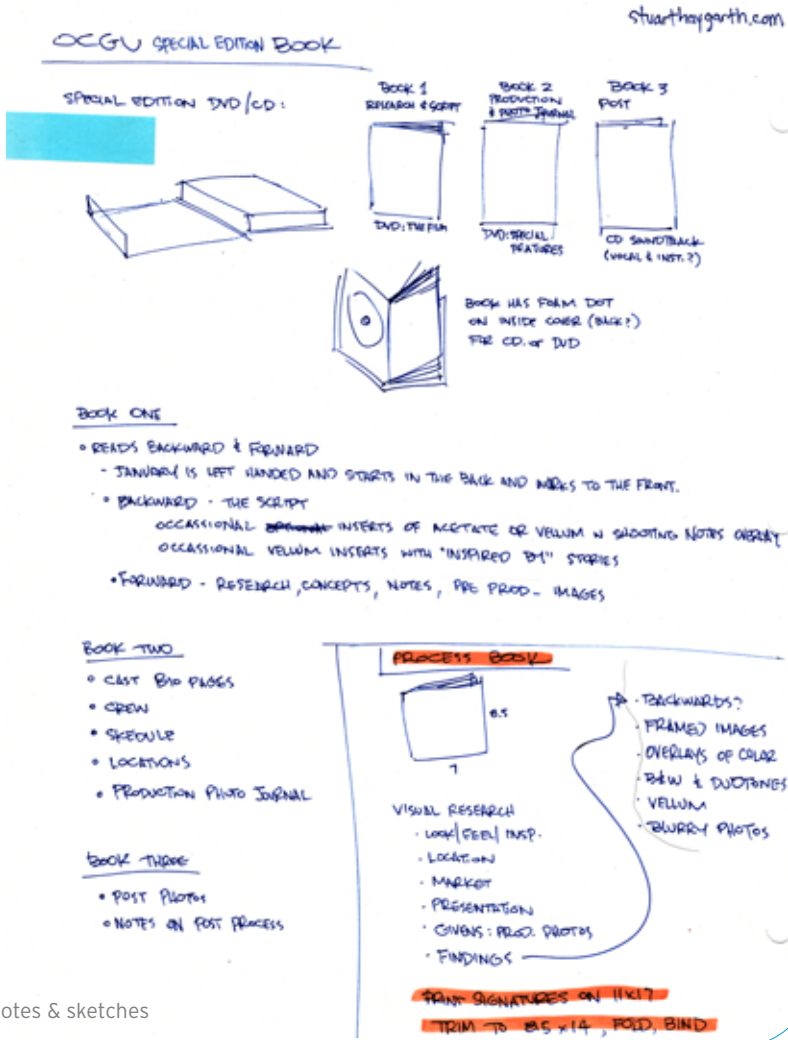 stuarthaygarth.com
OCGU SPECIAL EDITION BOOK
SPECIAL EDITION DVD/CD:
BOOK 1
RESEARCH & SCRIPT
DVD: THE FILM
BOOK 2
PRODUCTION
& PHOTO JOURNAL
DVD: SPECIAL
FEATURES
BOOK 3
POST
CD SOUNDTRACK
(VOCAL & INST.?)
BOOK HAS FOAM DOT
ON INSIDE COVER (BACK?)
FOR CD. or DVD
BOOK ONE
• READS BACKWARD & FORWARD
- JANUARY IS LEFT HANDED AND STARTS IN THE BACK AND WORKS TO THE FRONT.
• BACKWARD - THE SCRIPT
OCCASSIONAL OPTIONAL INSERTS OF ACETATE OR VELLUM W SHOOTING NOTES OVERLAY
OCCASSIONAL VELLUM INSERTS WITH "INSPIRED BY" STORIES
• FORWARD - RESEARCH, CONCEPTS, NOTES, PRE PROD- IMAGES
BOOK TWO
• CAST BIO PAGES
• CREW
• SKEDULE
• LOCATIONS
• PRODUCTION PHOTO JOURNAL
BOOK THREE
• POST PHOTOS
• NOTES ON POST PROCESS
PROCESS BOOK
8.5
7
VISUAL RESEARCH
· LOOK/FEEL/INSP.
· LOCATION
· MARKET
· PRESENTATION
· GIVENS: PROD. PHOTOS
· FINDINGS
· BACKWARDS?
· FRAMED IMAGES
· OVERLAYS OF COLOR
· B&W & DUOTONES
· VELLUM
· BLURRY PHOTOS
PRINT SIGNATURES ON 11x17
TRIM TO 8.5 x 14, FOLD, BIND
otes & sketches